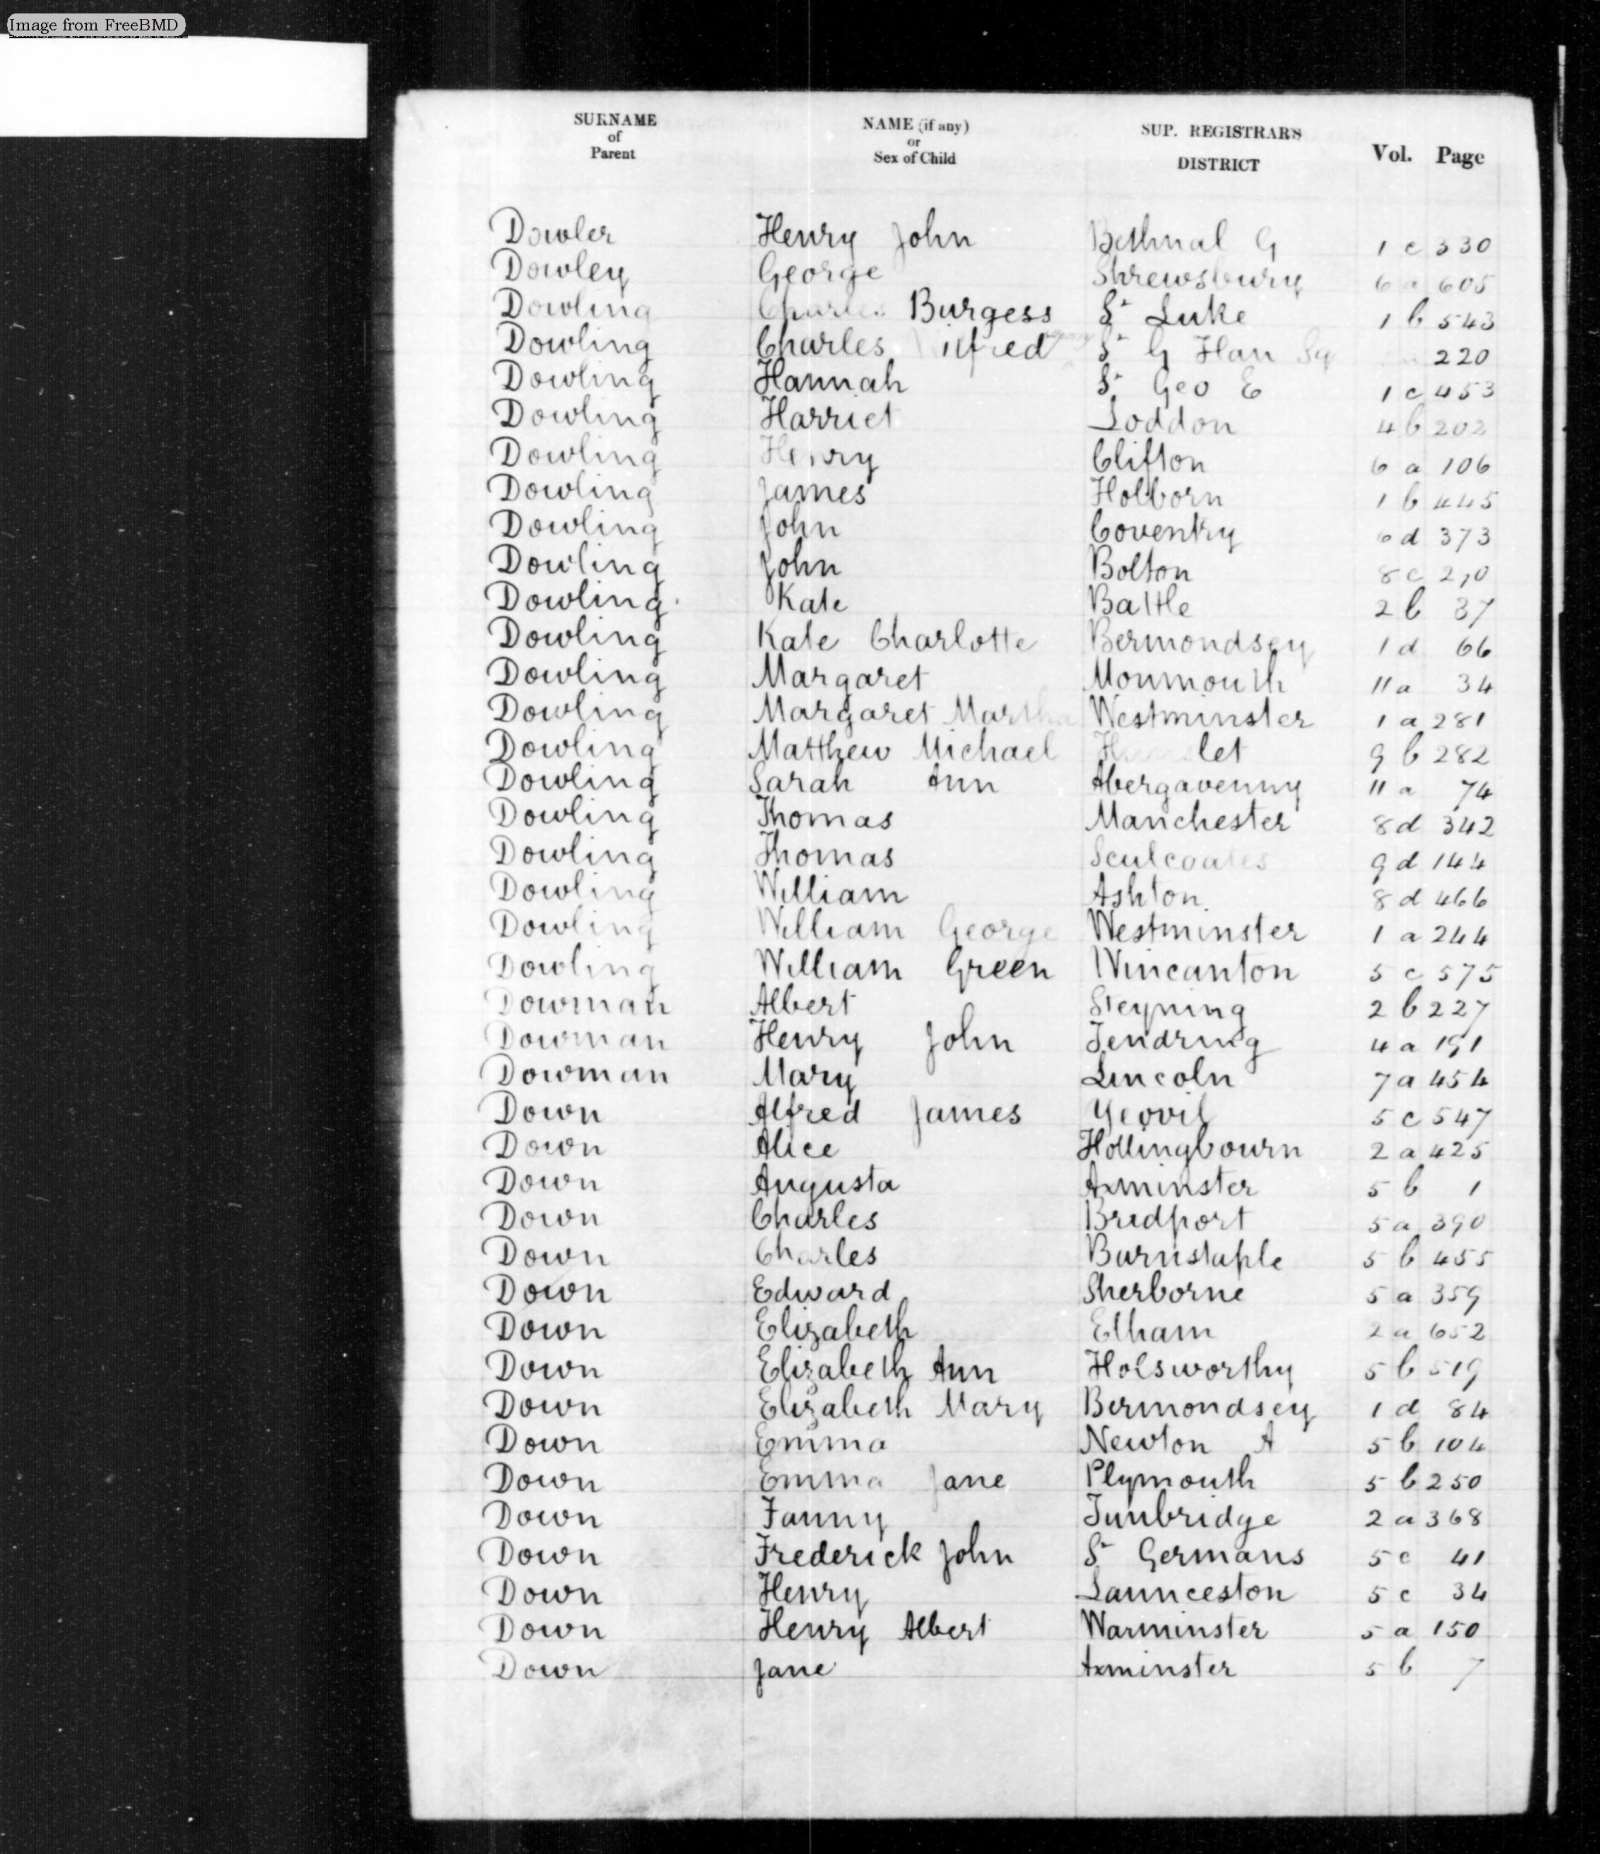 Image from FreeBMD
SURNAME of Parent NAME (if any) or Sex of Child SUP. REGISTRARS DISTRICT Vol. Page
Dowler Henry John Bethnal G 1 c 330
Dowley George Shrewsbury 6 a 605
Dowling Charles Burgess St Luke 1 b 543
Dowling Charles St G Han Sq 220
Dowling Hannah St Geo E 1 c 453
Dowling Harriet Loddon 4 b 202
Dowling Henry Clifton 6 a 106
Dowling James Holborn 1 b 445
Dowling John Coventry 6 d 373
Dowling John Bolton 8 c
Dowling Kate Battle 2 b 37
Dowling Kate Charlotte Bermondsey 1 d 66
Dowling Margaret Monmouth 11 a 34
Dowling Margaret Martha Westminster 1 a 281
Dowling Matthew Michael 9 b 282
Dowling Sarah Ann Abergavenny 11 a 74
Dowling Thomas Manchester 8 d 342
Dowling Thomas Sculcoates 9 d 144
Dowling William Ashton 8 d 466
Dowling William George Westminster 1 a 244
Dowling William Green Wincanton 5 c 575
Dowman Albert Steyning 2 b 227
Dowman Henry John Tendring 4 a 191
Dowman Mary Lincoln 7 a 454
Down Alfred James Yeovil 5 c 547
Down Alice Hollingbourn 2 a 425
Down Augusta Axminster 5 b 1
Down Charles Bridport 5 a 390
Down Charles Barnstaple 5 b 455
Down Edward Sherborne 5 a 359
Down Elizabeth Elham 2 a 652
Down Elizabeth Ann Holsworthy 5 b 519
Down Elizabeth Mary Bermondsey 1 d 84
Down Emma Newton A 5 b 104
Down Emma Jane Plymouth 5 b 250
Down Fanny Tunbridge 2 a 368
Down Frederick John St Germans 5 c 41
Down Henry Launceston 5 c 34
Down Henry Albert Warminster 5 a 150
Down Jane Axminster 5 b 7